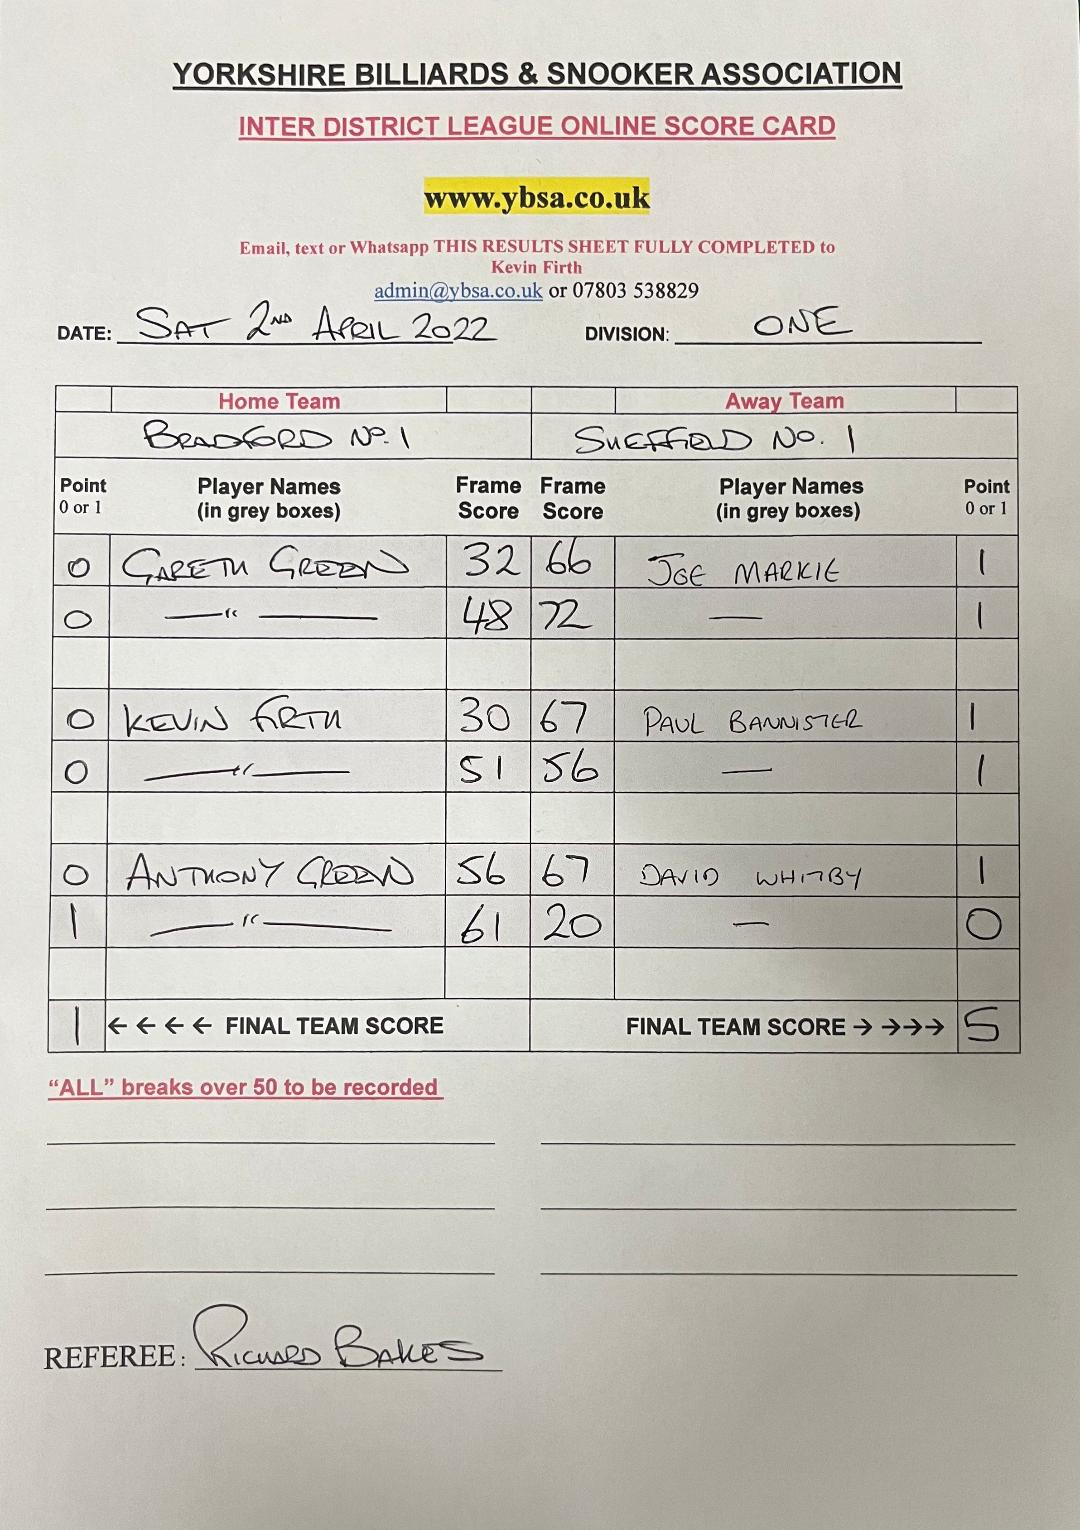 YORKSHIRE BILLIARDS & SNOOKER ASSOCIATION
INTER DISTRICT LEAGUE ONLINE SCORE CARD
www.ybsa.co.uk
Email, text or Whatsapp THIS RESULTS SHEET FULLY COMPLETED to
Kevin Firth
admin@ybsa.co.uk or 07803 538829
DATE: SAT 2ND APRIL 2022 DIVISION: ONE
Home Team Away Team
BRADFORD No. 1 SHEFFIELD No. 1
Point Player Names Frame Frame Player Names Point
0 or 1 (in grey boxes) Score Score (in grey boxes) 0 or 1
0 GARETH GREEN 32 66 JOE MARKIE 1
0 —"— 48 72 — 1
0 KEVIN FIRTH 30 67 PAUL BANNISTER 1
0 —"— 51 56 — 1
0 ANTHONY GREEN 56 67 DAVID WHITBY 1
1 —"— 61 20 — 0
1 ← ← ← ← FINAL TEAM SCORE FINAL TEAM SCORE → →→→ 5
“ALL” breaks over 50 to be recorded
REFEREE: RICHARD BAKES